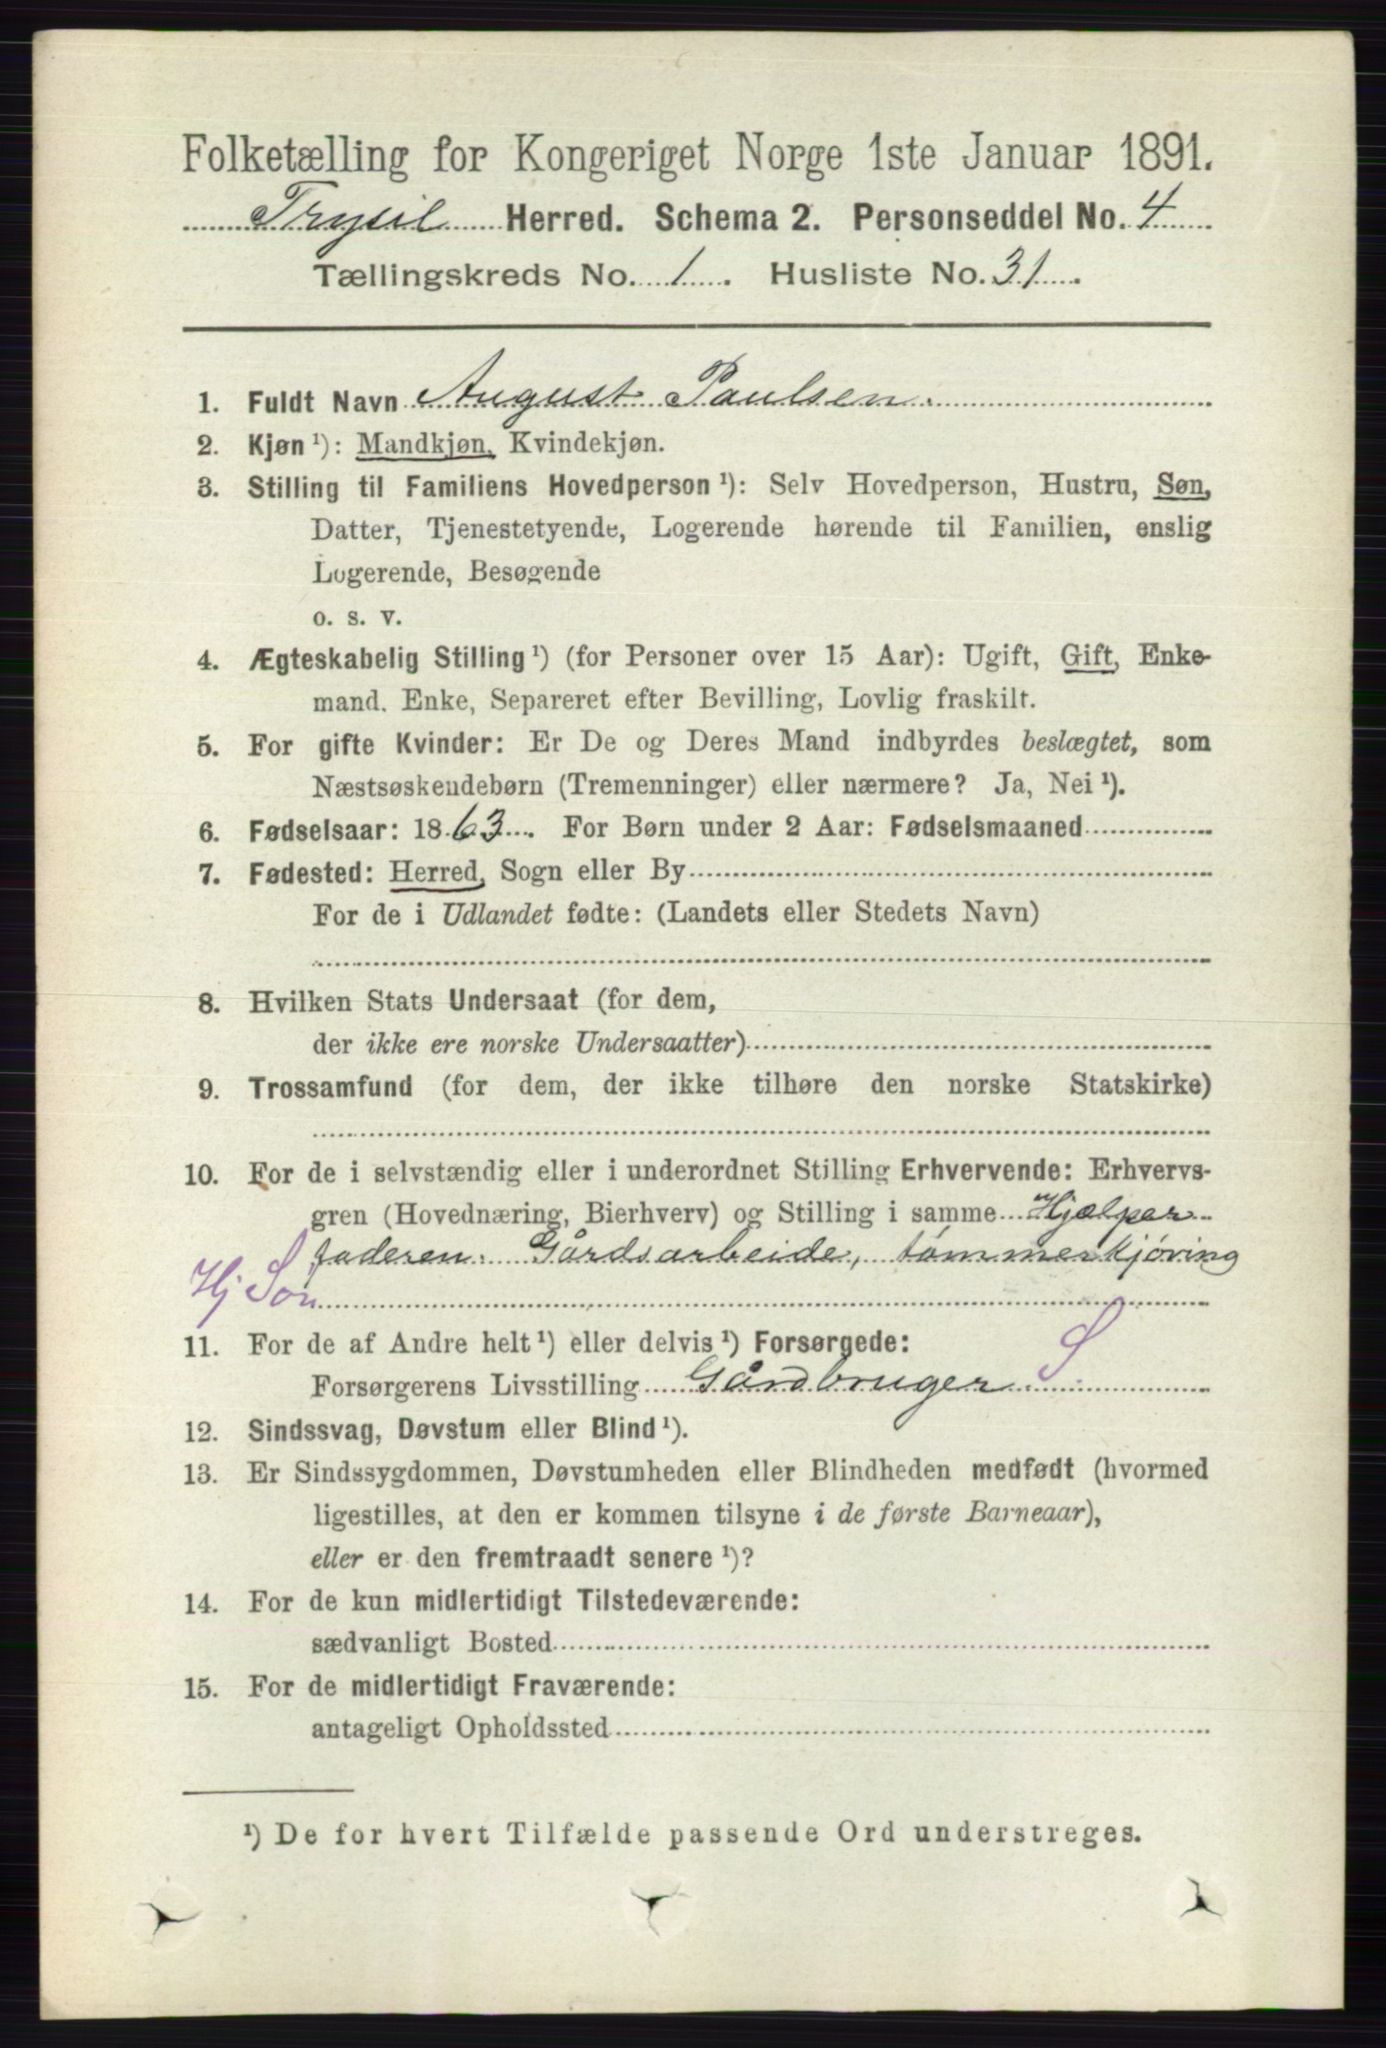 Folketælling for Kongeriget Norge 1ste Januar 1891.
Trysil Herred. Schema 2. Personseddel No. 4
Tællingskreds No. 1. Husliste No. 31.
1. Fuldt Navn August Paulsen.
2. Kjøn ¹): Mandkjøn, Kvindekjøn.
3. Stilling til Familiens Hovedperson ¹): Selv Hovedperson, Hustru, Søn,
Datter, Tjenestetyende, Logerende hørende til Familien, enslig
Logerende, Besøgende
o. s. v.
4. Ægteskabelig Stilling ¹) (for Personer over 15 Aar): Ugift, Gift, Enke-
mand. Enke, Separeret efter Bevilling, Lovlig fraskilt.
5. For gifte Kvinder: Er De og Deres Mand indbyrdes beslægtet, som
Næstsøskendebørn (Tremenninger) eller nærmere? Ja, Nei ¹).
6. Fødselsaar: 1863. For Børn under 2 Aar: Fødselsmaaned
7. Fødested: Herred, Sogn eller By
For de i Udlandet fødte: (Landets eller Stedets Navn)
8. Hvilken Stats Undersaat (for dem,
der ikke ere norske Undersaatter)
9. Trossamfund (for dem, der ikke tilhøre den norske Statskirke)
10. For de i selvstændig eller i underordnet Stilling Erhvervende: Erhvervs-
gren (Hovednæring, Bierhverv) og Stilling i samme Hjælper
faderen. Gårdsarbeide, tömmerkjöring
Hj Søn
11. For de af Andre helt ¹) eller delvis ¹) Forsørgede:
Forsørgerens Livsstilling Gårdbruger S
12. Sindssvag, Døvstum eller Blind ¹).
13. Er Sindssygdommen, Døvstumheden eller Blindheden medfødt (hvormed
ligestilles, at den er kommen tilsyne i de første Barneaar),
eller er den fremtraadt senere ¹)?
14. For de kun midlertidigt Tilstedeværende:
sædvanligt Bosted
15. For de midlertidigt Fraværende:
antageligt Opholdssted
¹) De for hvert Tilfælde passende Ord understreges.